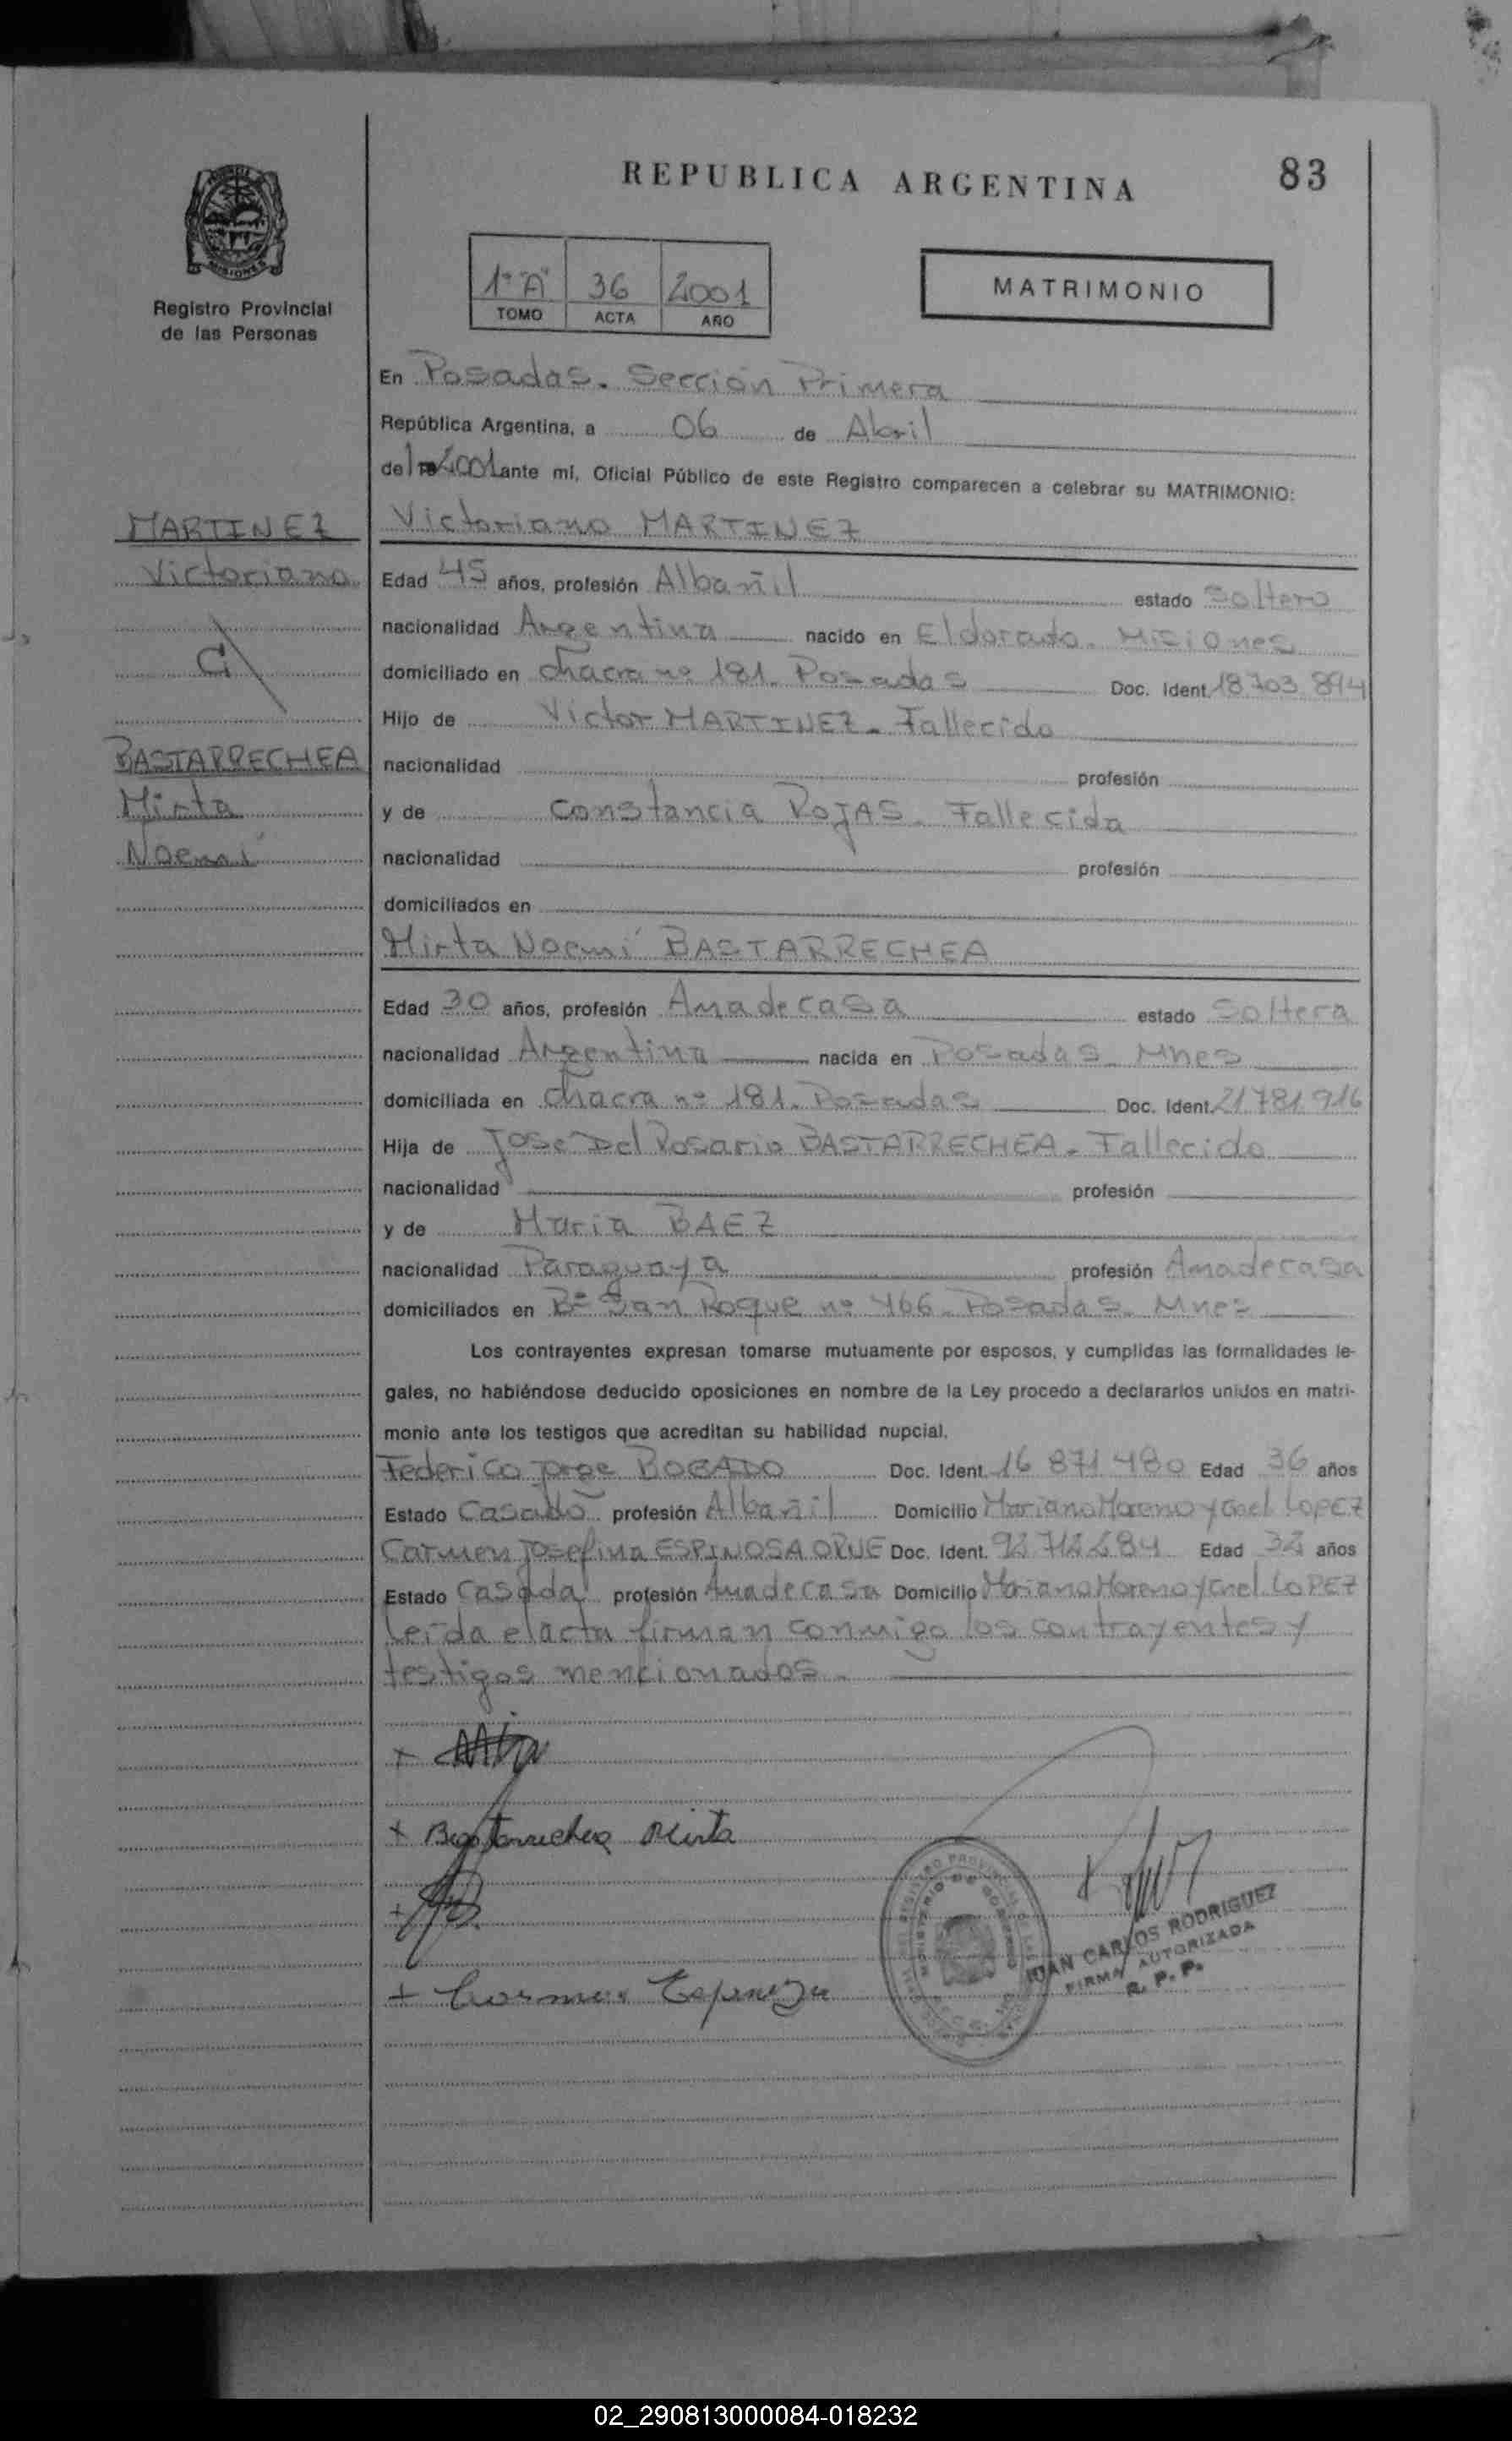 REPUBLICA ARGENTINA
83
MISIONES
Registro Provincial
de las Personas
1º "A" 36 2001
TOMO ACTA AÑO
MATRIMONIO
En Posadas. Sección Primera
República Argentina, a 06 de Abril
del 2001 ante mí, Oficial Público de este Registro comparecen a celebrar su MATRIMONIO:
MARTINEZ
Victoriano
BASTARRECHEA
Mirta
Noemí
Victoriano MARTINEZ
Edad 45 años, profesión Albañil estado Soltero
nacionalidad Argentina nacido en Eldorado. Misiones
domiciliado en Chacra nº 181. Posadas Doc. Ident. 18 703 894
Hijo de Victor MARTINEZ. Fallecido
nacionalidad profesión
y de Constancia ROJAS. Fallecida
nacionalidad profesión
domiciliados en
Mirta Noemí BASTARRECHEA
Edad 30 años, profesión Ama de casa estado Soltera
nacionalidad Argentina nacida en Posadas. Mnes
domiciliada en Chacra nº 181. Posadas Doc. Ident. 21 781 916
Hija de José Del Rosario BASTARRECHEA. Fallecido
nacionalidad profesión
y de Maria BAEZ
nacionalidad Paraguaya profesión Ama de casa
domiciliados en Bº San Roque nº 466. Posadas. Mnes
Los contrayentes expresan tomarse mutuamente por esposos, y cumplidas las formalidades le-
gales, no habiéndose deducido oposiciones en nombre de la Ley procedo a declararlos unidos en matri-
monio ante los testigos que acreditan su habilidad nupcial.
Federico Jorge BOGADO Doc. Ident. 16 871 480 Edad 36 años
Estado Casado profesión Albañil Domicilio Mariano Moreno y Cnel LOPEZ
Carmen Josefina ESPINOSA ORUE Doc. Ident. 92 712 284 Edad 32 años
Estado Casada profesión Ama de casa Domicilio Mariano Moreno y Cnel LOPEZ
Leída el acta firman conmigo los contrayentes y
testigos mencionados.
+ Bastarrechea Mirta
+ Carmen Espinoza
JUAN CARLOS RODRIGUEZ
FIRMA AUTORIZADA
R. P. P.
02_290813000084-018232